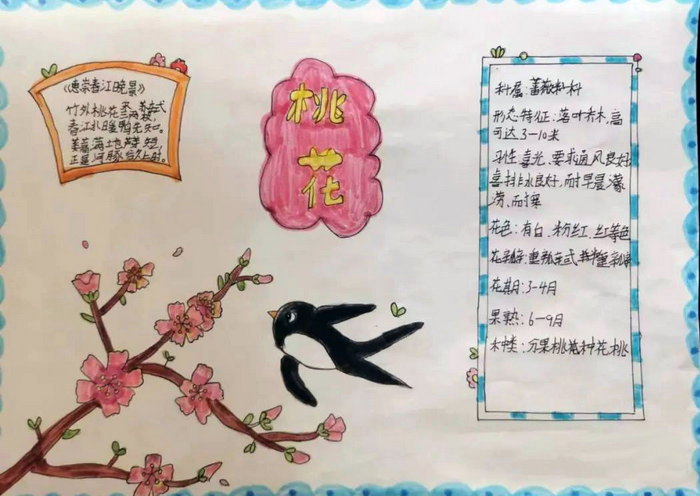 《惠崇春江晚景》
竹外桃花三两枝
春江水暖鸭先知。
蒌蒿满地芦芽短，
正是河豚欲上时。
桃
花
科属：蔷薇科
形态特征：落叶乔木，高
可达3-10米
习性喜光、要求通风良好
喜排水良好，耐旱
涝、耐寒
花色：有白、粉红、红等色
花期：3-4月
果熟：6-9月
种类：分果桃 花桃